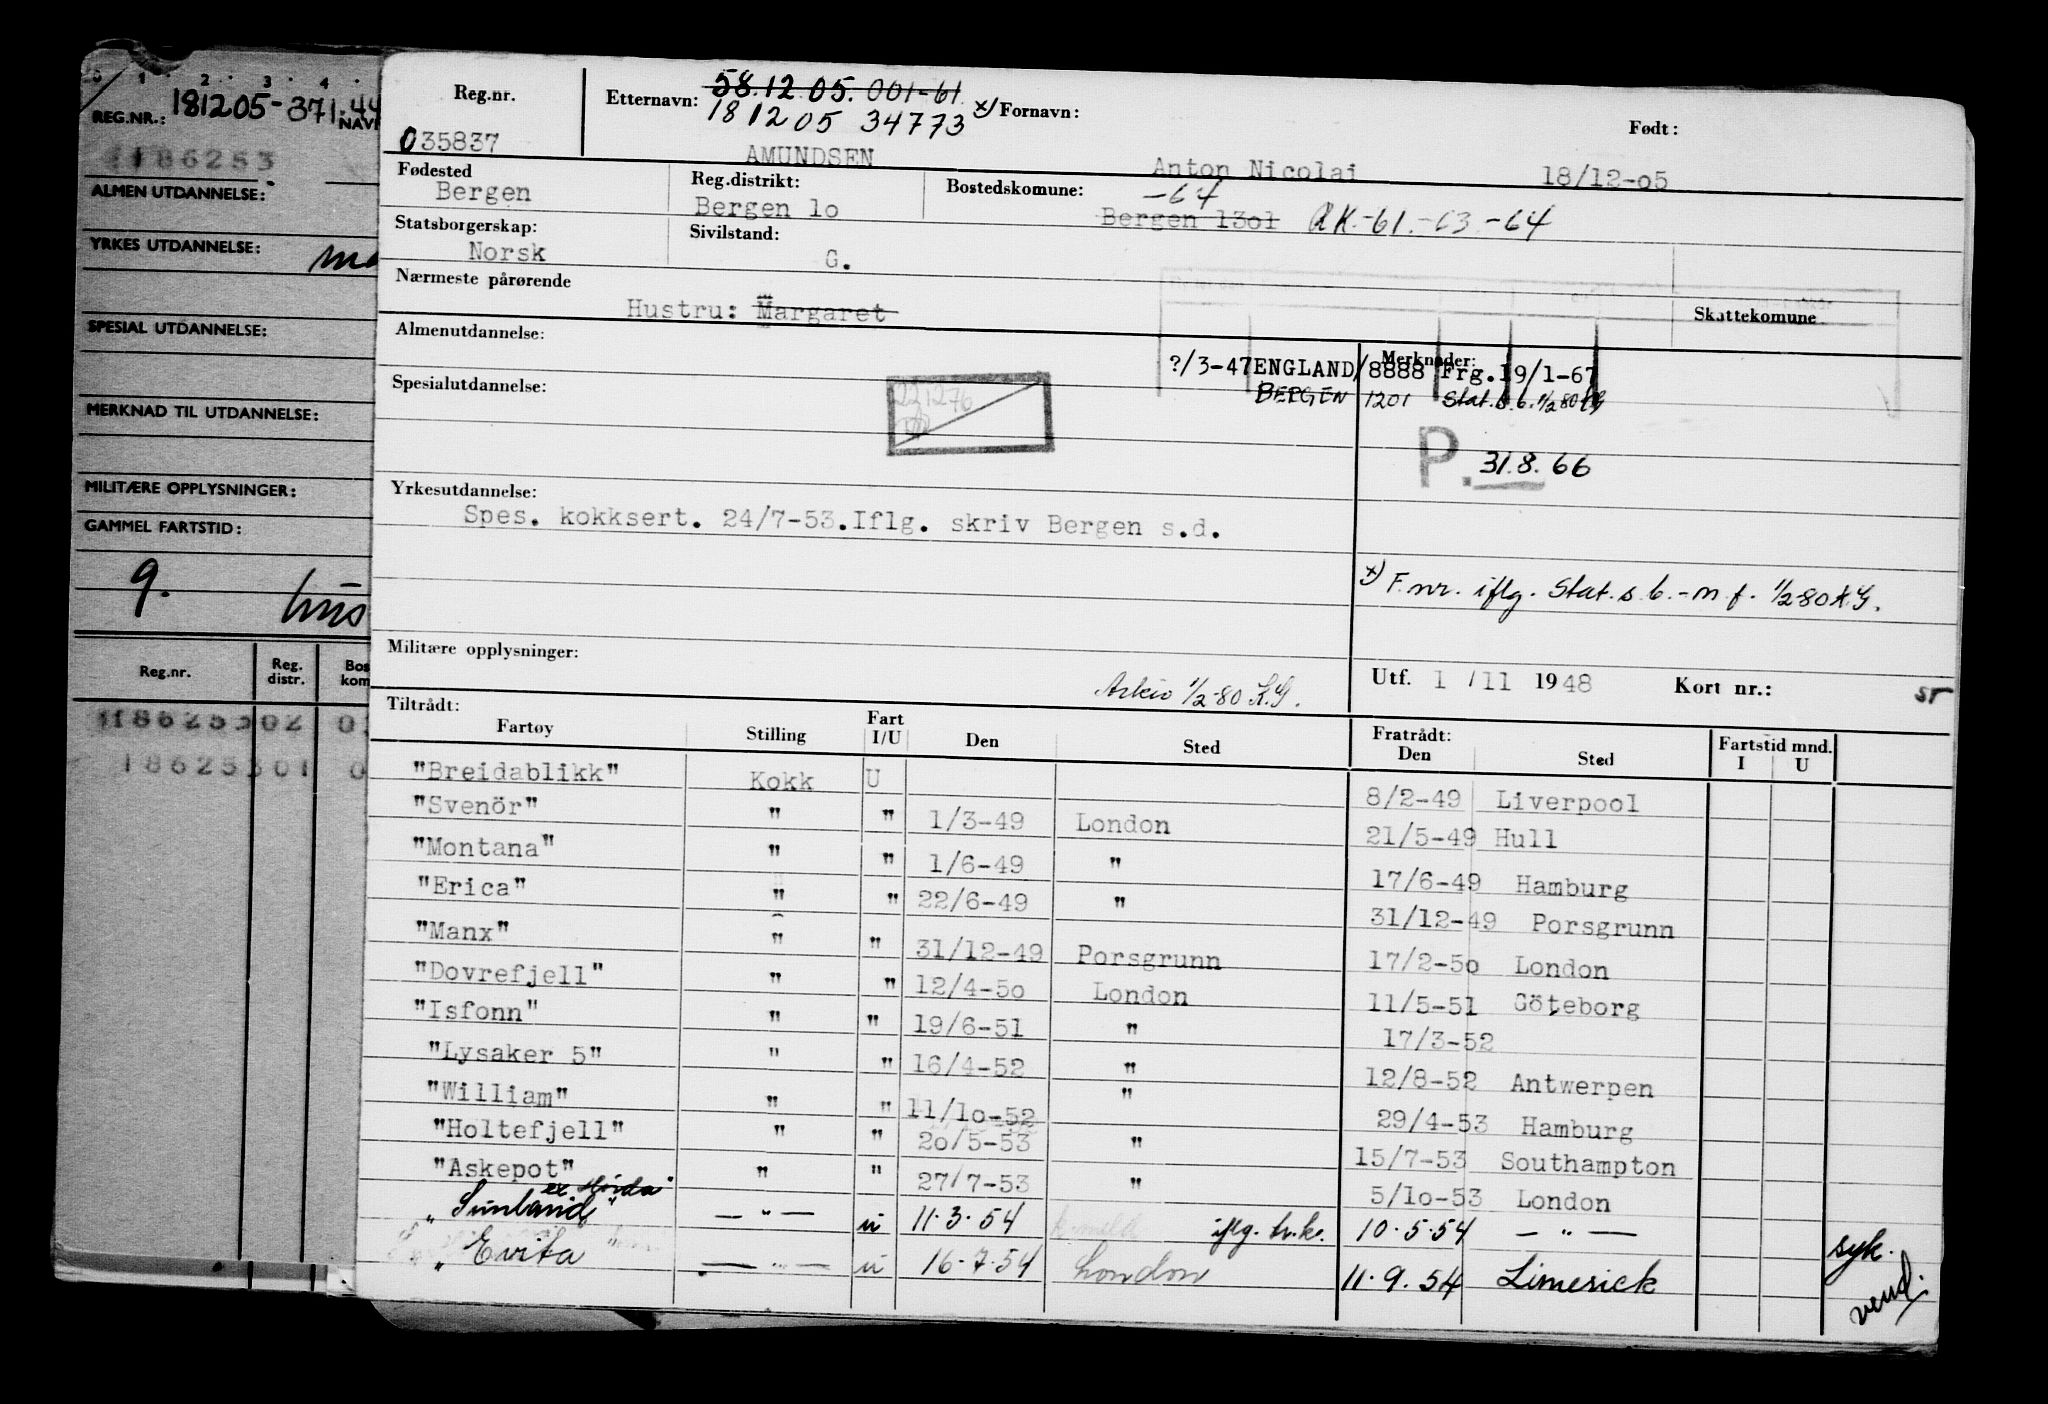 0 1 2 3 4
REG.NR.: 181205-371.44 NAV
1186253
ALMEN UTDANNELSE:
YRKES UTDANNELSE:
SPESIAL UTDANNELSE:
MERKNAD TIL UTDANNELSE:
MILITÆRE OPPLYSNINGER:
GAMMEL FARTSTID:
9.
Reg.nr. Reg. distr. Bos kom
1186253 02 0
186253 01 0
Reg.nr. Etternavn: 58.12.05.001-61 Fornavn: Født:
18 12 05 34773 x)
035837 AMUNDSEN Anton Nicolai 18/12-05
Fødested Reg.distrikt: Bostedskomune: -64
Bergen Bergen 10 Bergen 1301 RK-61.-63.-64
Statsborgerskap: Sivilstand:
Norsk G.
Nærmeste pårørende
Hustru: Margaret Skattekomune
Almenutdannelse:
?/3-47 ENGLAND/8888 Merknader: Frg. 19/1-67
Spesialutdannelse: BERGEN 1201 Stat.s.b. 1/2 80 KG
221276
P. 31.8.66
Yrkesutdannelse:
Spes. kokksert. 24/7-53. Iflg. skriv Bergen s.d.
x) F.nr. iflg. Stat.s.b.-m.f. 1/2-80 K.G.
Militære opplysninger:
Arkiv 1/2-80 K.G. Utf. 1 / 11 1948 Kort nr.: ST
Tiltrådt: Fratrådt: Fartstid mnd.
Fartøy Stilling Fart I/U Den Sted Den Sted I U
"Breidablikk" Kokk U 8/2-49 Liverpool
"Svenör" " " 1/3-49 London 21/5-49 Hull
"Montana" " " 1/6-49 " 17/6-49 Hamburg
"Erica" " " 22/6-49 " 31/12-49 Porsgrunn
"Manx" " " 31/12-49 Porsgrunn 17/2-50 London
"Dovrefjell" " " 12/4-50 London 11/5-51 Göteborg
"Isfonn" " " 19/6-51 " 17/3-52
"Lysaker 5" " " 16/4-52 " 12/8-52 Antwerpen
"William" " " 11/10-52 " 29/4-53 Hamburg
"Holtefjell" " " 20/5-53 " 15/7-53 Southampton
"Askepot" " " 27/7-53 " 5/10-53 London
"Sunland ex Hörda" — " — u 11.3.54 iflg. h.k. 10.5.54 — " — syk.
" Evita — " — u 16.7.54 London 11.9.54 Limerick vend.